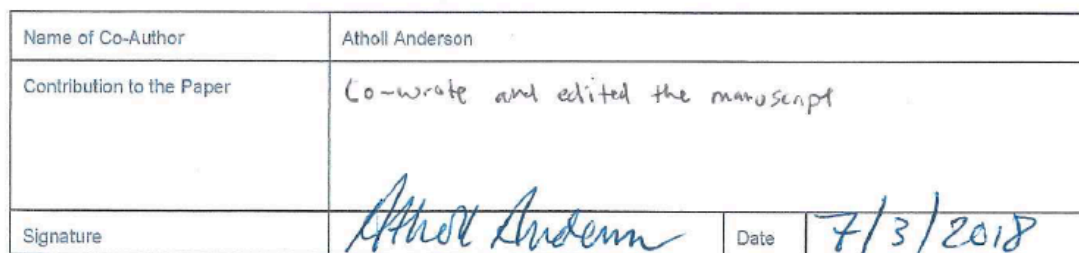 Name of Co-Author Atholl Anderson
Contribution to the Paper Co-wrote and edited the manuscript
Signature Atholl Anderson Date 7/3/2018